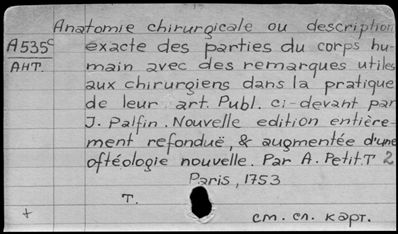 Anatomie chirurgicale ou description
A535c exacte des parties du corps hu-
АНТ. main avec des remarques utiles
aux chirurgiens dans la pratique
de leur art. Publ. ci-devant par
J. Palfin. Nouvelle edition entière-
ment refonduë, & augmentée d'une
oftéologie nouvelle. Par A. Petit. T 2
Paris, 1753
T.
+ см. сл. карт.